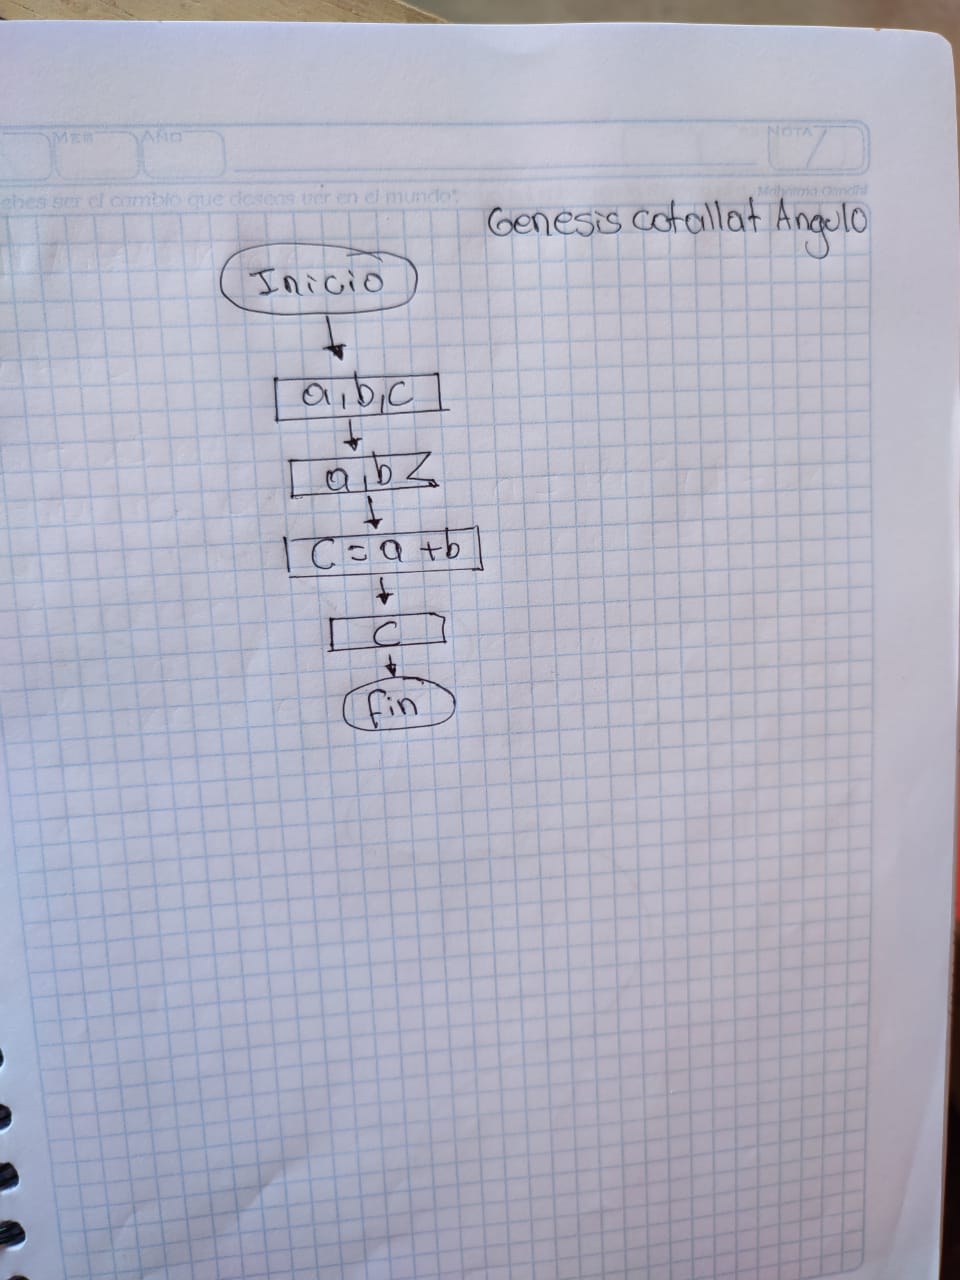 MES AÑO NOTA
ebes ser el cambio que deseas ver en el mundo"
Mahatma Gandhi
Genesis cotallat Angulo
Inicio
a,b,c
a,b
C=a+b
C
fin